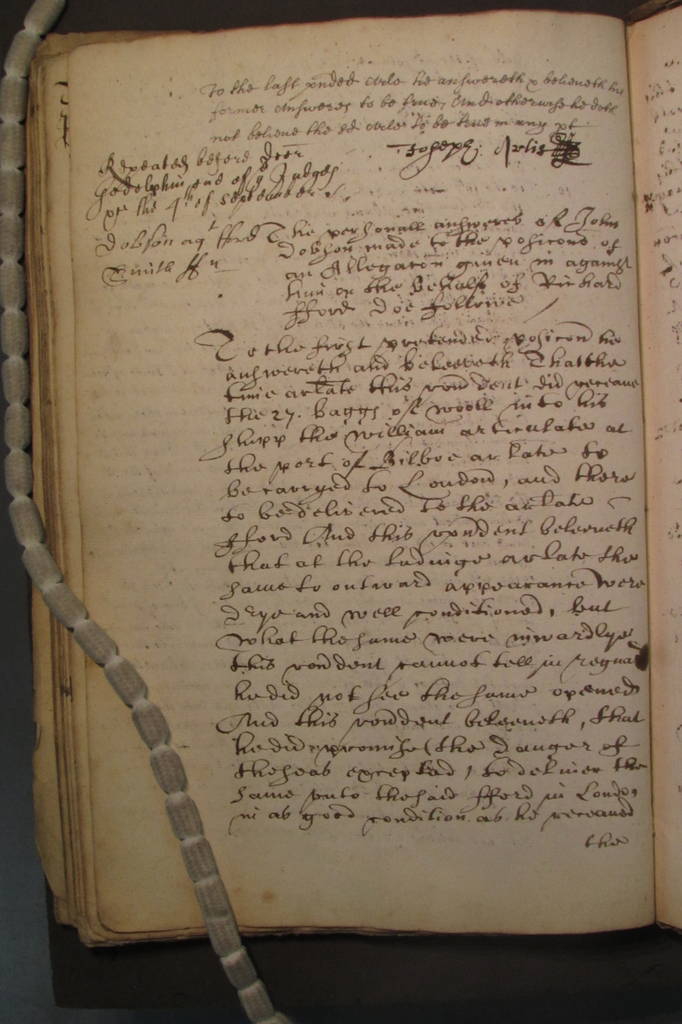 To the last pnded arle he answereth & beleeveth his
former answeres to be true, And otherwise he doth
not beleive the sd arle to be true in any pt
Repeated before Doctor
Godolphin one of ye Judges
pr the 4th of September
Joseph: Arlis
Dobson agt fford
Smith ffr
The personall answeres of John
Dobson made to the posicons of
an Allegacon given in against
him on the behalfe of Richard
fford doe followe
To the first pretended posicon he
answereth and beleeveth That the
time arlate this rondent did receave
the 27. baggs of wooll into his
shipp the William articulate at
the port of Bilboe arlate to
be carryed to London, and there
to be delivered to the arlate
fford And this rondent beleeveth
that at the ladinge arlate the
same to outward appearance were
drye and well conditioned, but
what the same were inwardlye
this rondent cannot tell in regard
he did not see the same opened
And this rondent beleeveth, that
he did promise (the danger of
the seas excepted) to deliver the
same unto the said fford in London
in as good condition as he receaved
the